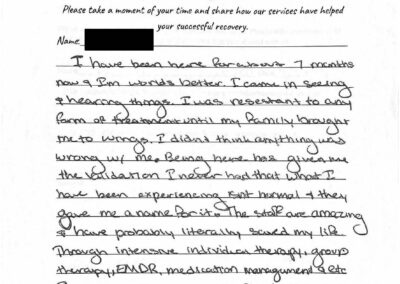 Please take a moment of your time and share how our services have helped
your successful recovery.
Name
I have been here for about 7 months
now & I'm worlds better. I came in seeing
& hearing things. I was resestant to any
form of treatment until my family brought
me to wings. I didn't think anything was
wrong w/ me. Being here has given me
the validation I never had that what I
have been experiencing isnt normal & they
gave me a name for it. The staff are amazing
& have probably literally saved my life
Through intensive individual therapy, group
therapy, EMDR, medication management & etc